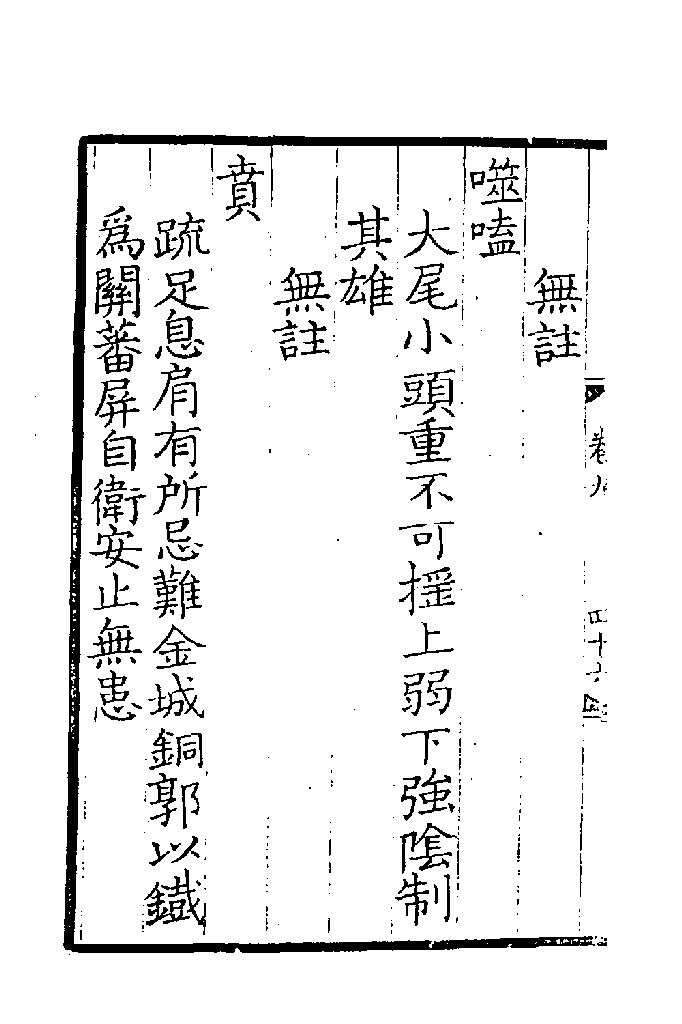 卷九
四十六
無註
噬嗑
大尾小頭重不可搖上弱下強陰制
其雄
無註
賁
䟽足息肩有所忌難金城銅郭以鐵
為關蕃屏自衛安止無患